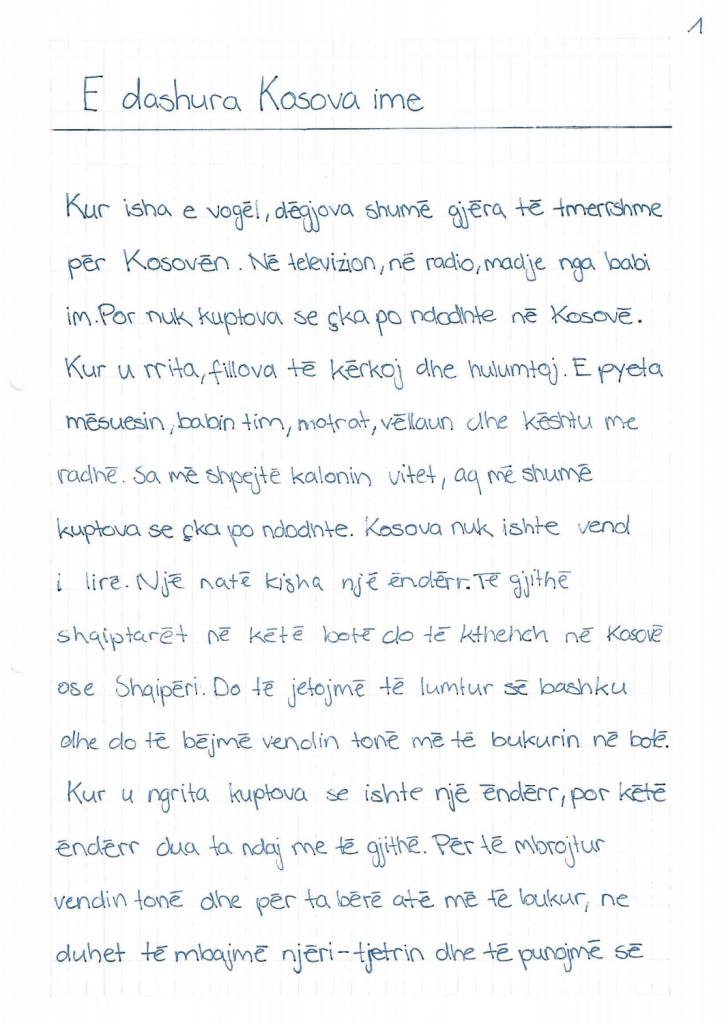 1
E dashura Kosova ime
Kur isha e vogël, dëgjova shumë gjëra të tmerrshme
për Kosovën. Në televizion, në radio, madje nga babi
im. Por nuk kuptova se çka po ndodhte në Kosovë.
Kur u rrita, fillova të kërkoj dhe hulumtoj. E pyeta
mësuesin, babin tim, motrat, vëllaun dhe kështu me
radhë. Sa më shpejtë kalonin vitet, aq më shumë
kuptova se çka po ndodhte. Kosova nuk ishte vend
i lirë. Një natë kisha një ëndërr. Të gjithë
shqiptarët në këtë botë do të kthehen në Kosovë
ose Shqipëri. Do të jetojmë të lumtur së bashku
dhe do të bëjmë vendin tonë më të bukurin në botë.
Kur u ngrita kuptova se ishte një ëndërr, por këtë
ëndërr dua ta ndaj me të gjithë. Për të mbrojtur
vendin tonë dhe për ta bërë atë më të bukur, ne
duhet të mbajmë njëri-tjetrin dhe të punojmë së